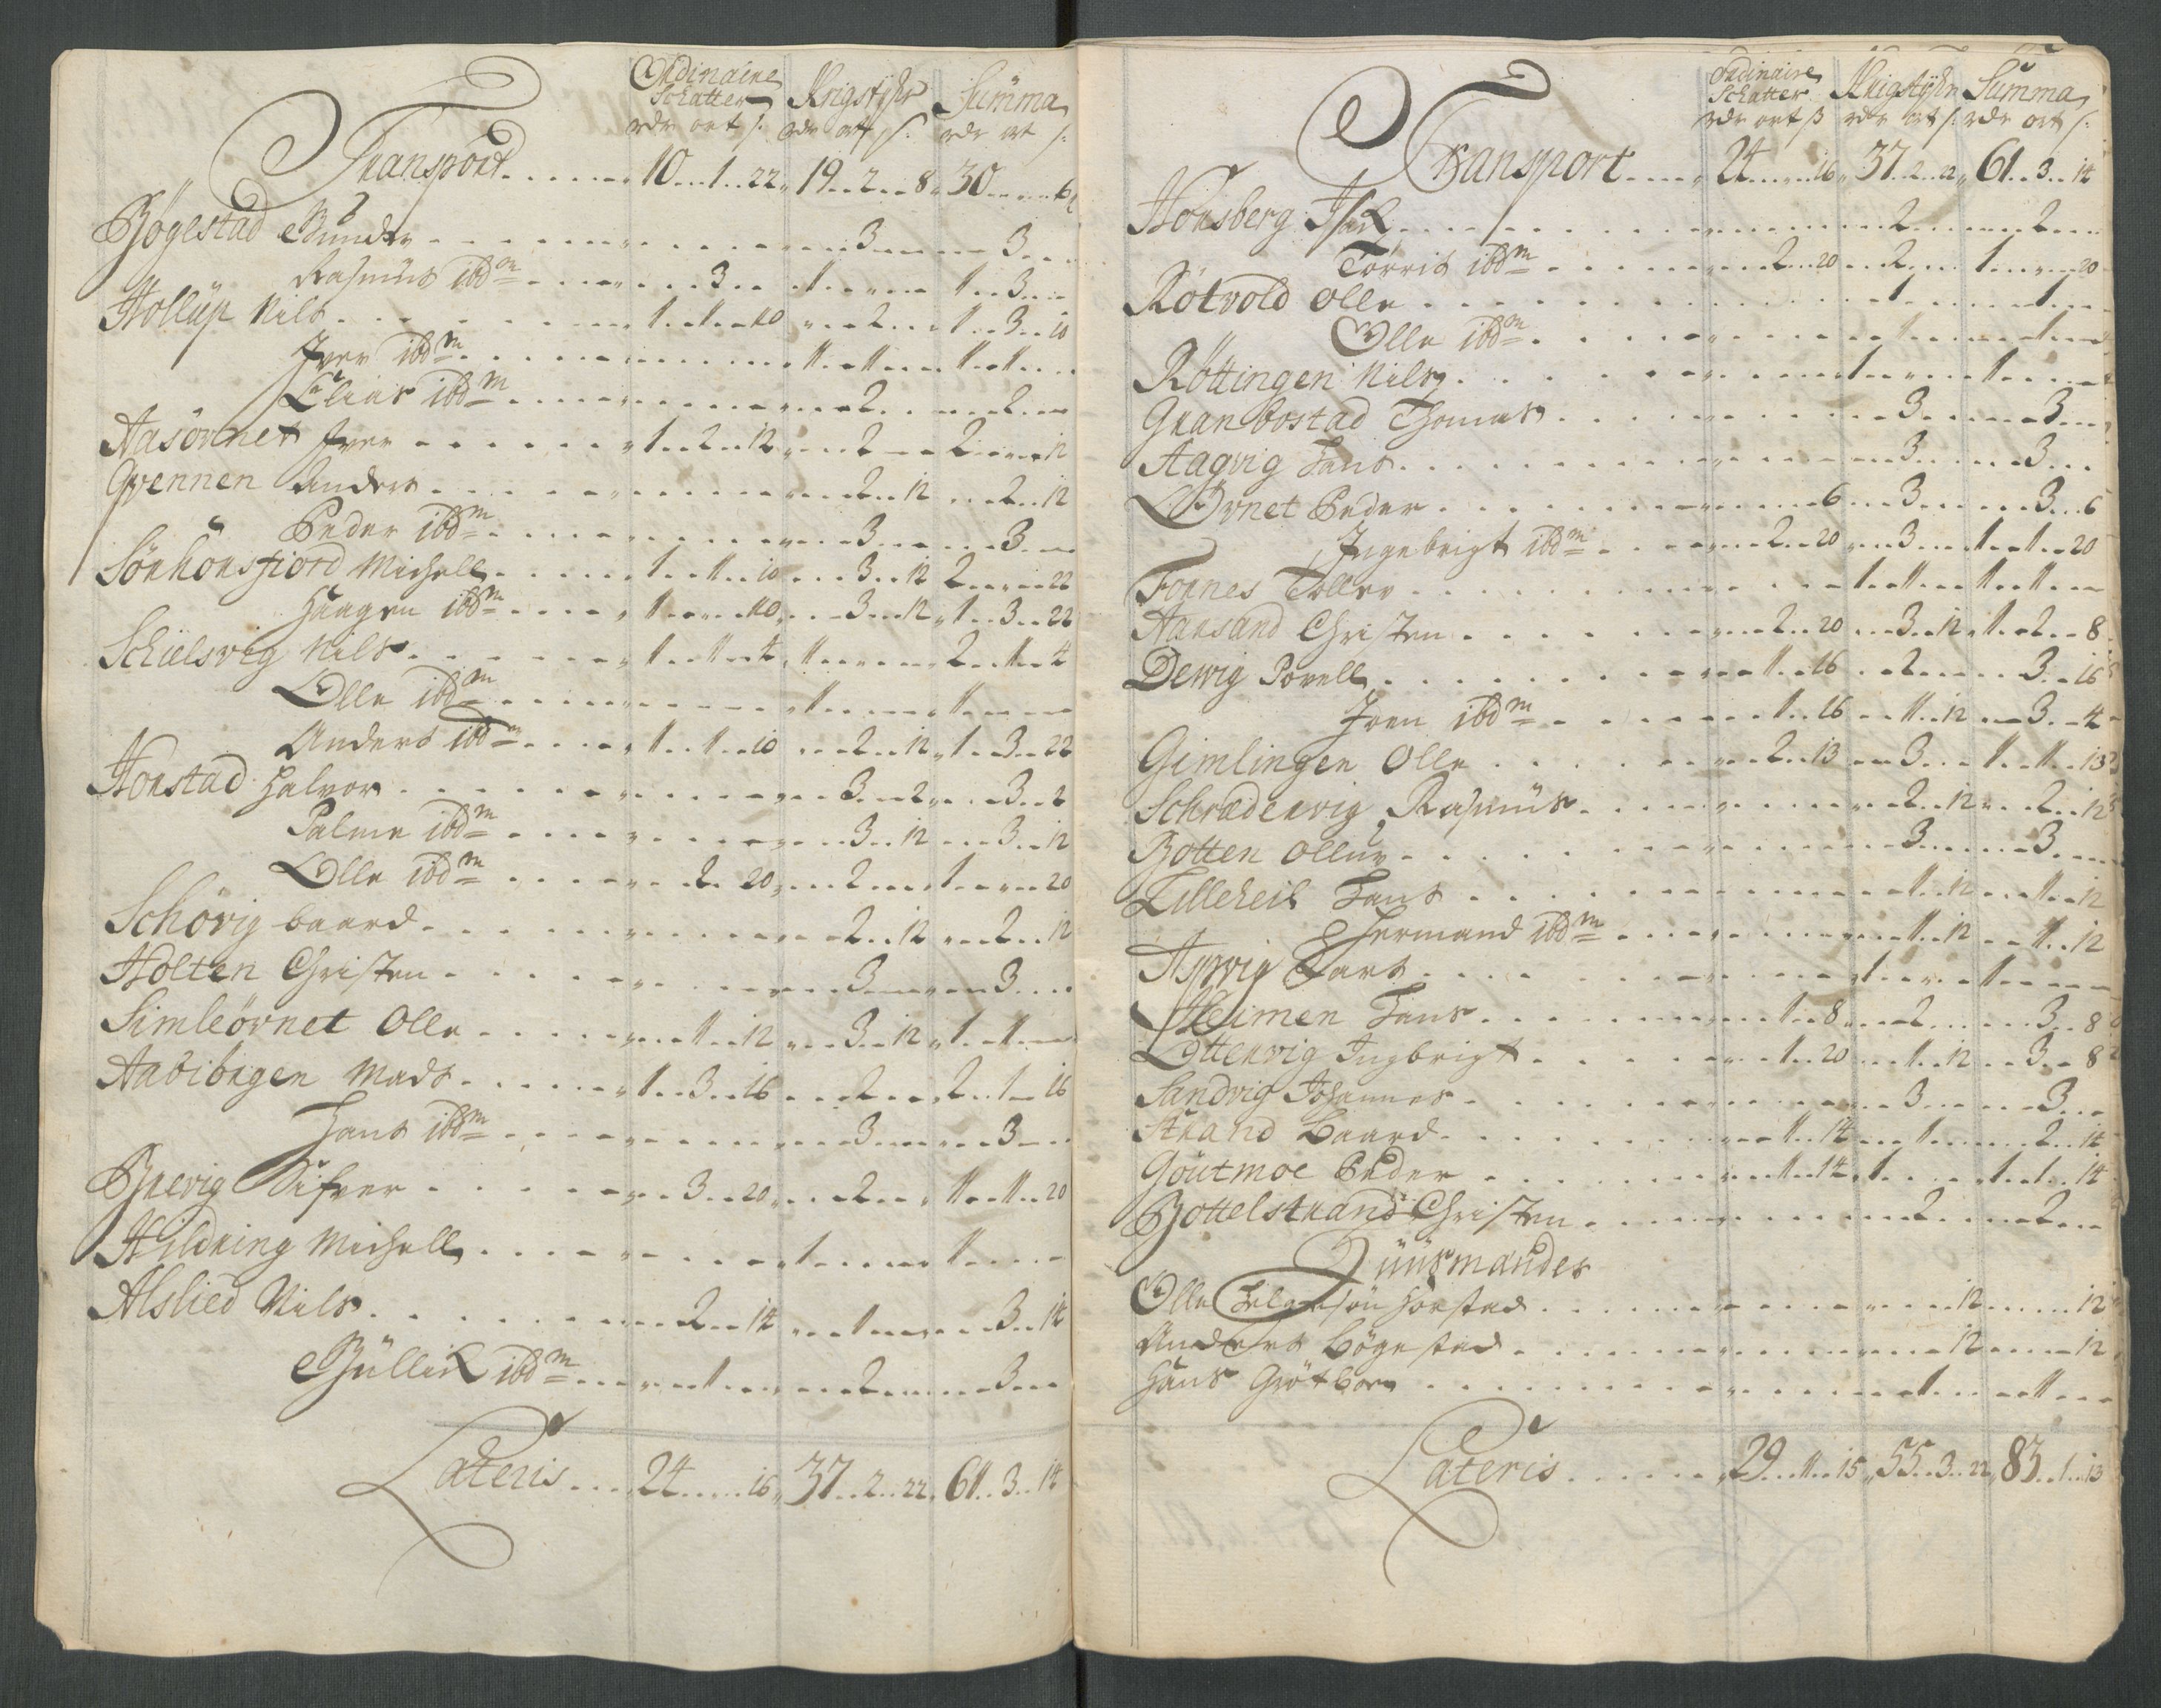 Ordinaire
Schatter Krigstÿhr Summa
rdr ort s: rdr ort s: rdr ort s:
Transport 10 1 22 19 2 8 30 6
Bøgestad Gunder 3 3
Rasmus ibdm 3 1 1 3
Hollup Nils 1 1 10 2 1 3 10
Iver ibdm 1 1 1 1
Elias ibdm 2 2
Aasörnet Iver 1 2 12 2 2 12
Qvennen Anders 2 12 2 12
Peder ibdm 3 3
Sörhorsfiord Michell 1 1 10 3 12 2 22
Haagen ibdm 1 10 3 12 1 3 22
Schielsvig Nils 1 1 4 1 2 1 4
Olle ibdm 1 1
Anders ibdm 1 1 10 2 12 1 3 22
Horstad Halvor 3 2 3 2
Palme ibdm 3 12 3 12
Olle ibdm 2 20 2 1 20
Schörig baard 2 12 2 12
Holten Christen 3 3
Simleörnet Olle 1 12 3 12 1 1
Aabibogen Mads 1 3 16 2 2 1 16
Hans ibdm 3 3
Brevig Sifver 3 20 2 1 1 20
Hildring Michell 1 1
Alslied Nils 2 14 1 3 14
Gullik ibdm 1 2 3
Lateris 24 16 37 2 22 61 3 14
Ordinaire
Schatter Krigstÿhr Summa
rdr ort ß rdr ort s: rdr ort s:
Transport 24 16 37 2 22 61 3 14
Horsberg Isak 2 2
Torris ibdm 2 20 2 1 20
Rötvold Olle 1 1
Olle ibdm 1 1
Röttingen Nils 1 1
Granbostad Thomas 3 3
Aagvig Hans 3 3
Örnet Peder 6 3 3 6
Ingebrigt ibdm 2 20 3 1 1 20
Fornes Toller 1 1 1 1
Aarsand Christen 2 20 3 12 1 2 8
Devig Povell 1 16 2 3 16
Iven ibdm 1 16 1 12 3 4
Gimlingen Olle 2 13 3 1 1 13
Schrædervig Rasmus 2 12 2 12
Botten Olluv 3 3
Lilleheil Hans 1 12 1 12
Hermand ibdm 1 12 1 12
Aspvig Lars 1 1
Heimen Hans 1 8 2 3 8
Ottervig Ingbrigt 1 20 1 12 3 8
Sandvig Johannes 3 3
Strand Baard 1 14 1 2 14
Goutmoe Peder 1 14 1 1 1 14
Bottelstrand Christen 2 2
Huusmænder
Olle Helgesøn Horstad 12 12
Anders Bögestad 12 12
Hans Grötbor 1 1
Lateris 29 1 15 55 3 22 83 1 13